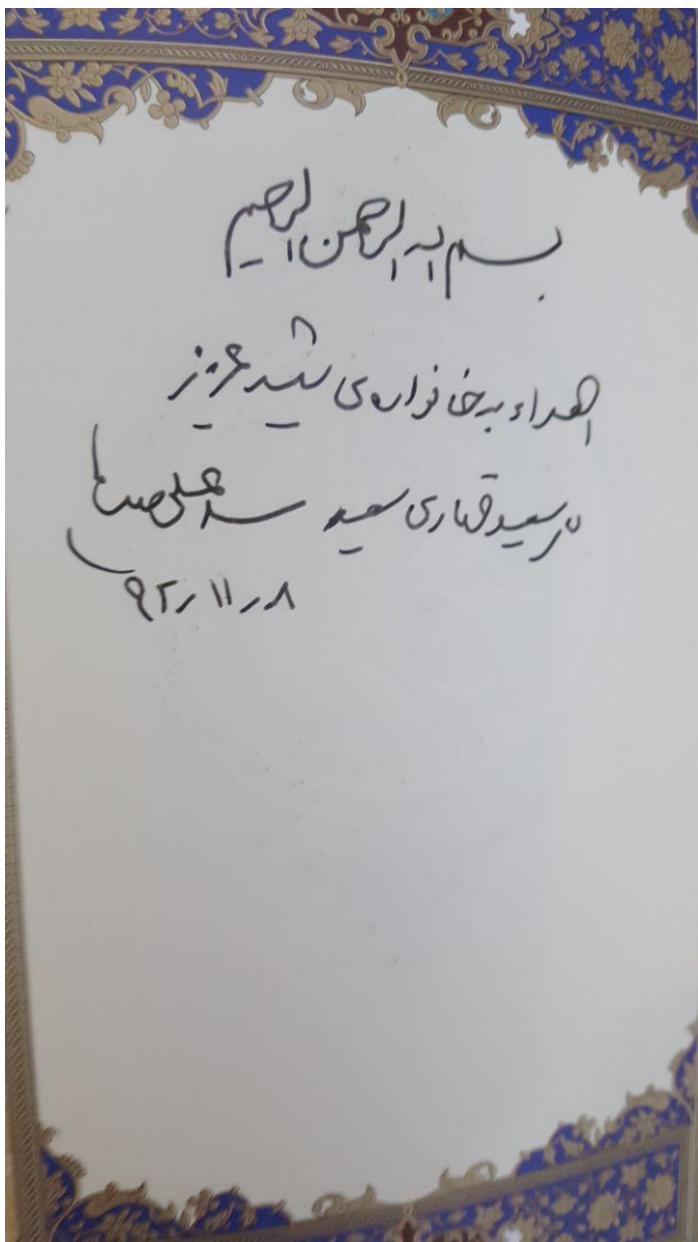 بسم الله الرحمن الرحیم
اهداء به خانواده‌ی شهید عزیز
سعید سید علی
۹۲٫۱۱٫۸